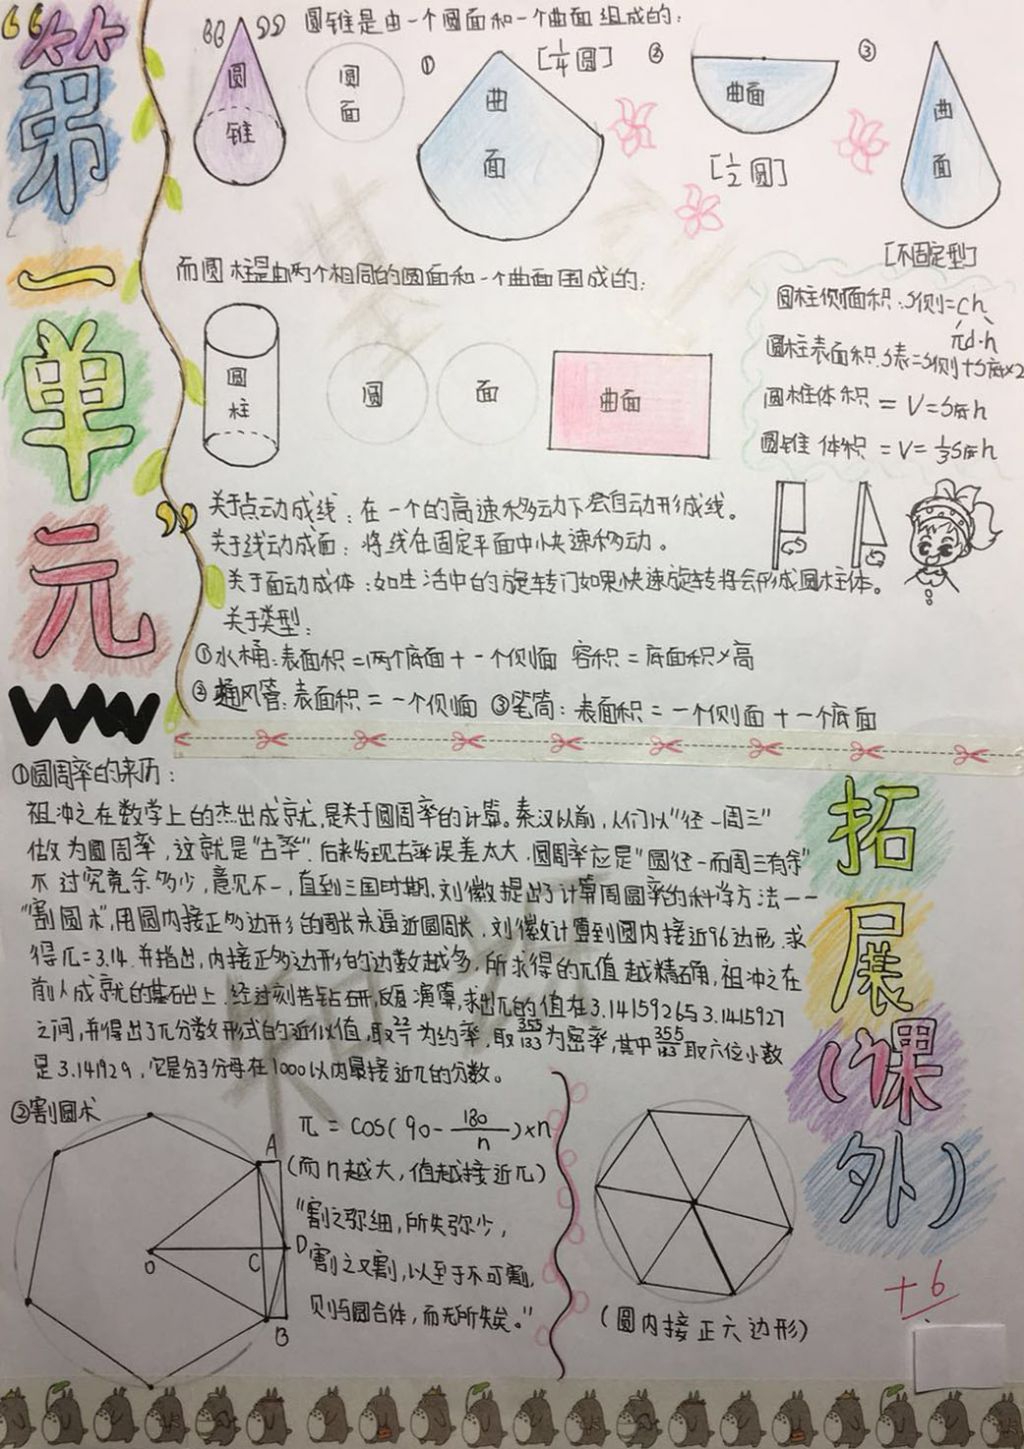 第一单元
圆锥是由一个圆面和一个曲面组成的:
圆锥
圆面
①
曲面
[¼圆]
②
曲面
[½圆]
③
曲面
[不固定型]
而圆柱是由两个相同的圆面和一个曲面围成的:
圆柱
圆
面
曲面
圆柱侧面积:S侧=Ch
πd·h
圆柱表面积:S表=S侧+S底×2
圆柱体积=V=S底h
圆锥体积=V=⅓S底h
关于点动成线:在一个的高速移动下会自动形成线。
关于线动成面:将线在固定平面中快速移动。
关于面动成体:如生活中的旋转门如果快速旋转将会形成圆柱体。
关于类型:
①水桶:表面积=两个底面+一个侧面 容积=底面积×高
②通风管:表面积=一个侧面 ③笔筒:表面积=一个侧面+一个底面
拓展(课外)
①圆周率的来历:
祖冲之在数学上的杰出成就,是关于圆周率的计算。秦汉以前,人们以"径一周三"
做为圆周率,这就是"古率".后来发现古率误差太大,圆周率应是"圆径一而周三有余"
不过究竟余多少,意见不一,直到三国时期,刘徽提出了计算周圆率的科学方法——
"割圆术",用圆内接正多边形的周长来逼近圆周长.刘徽计算到圆内接近96边形,求
得π=3.14.并指出,内接正多边形的边数越多,所求得的π值越精确,祖冲之在
前人成就的基础上.经过刻苦钻研,反复演算,求出π的值在3.1415926与3.1415927
之间,并得出了π分数形式的近似值,取22/7为约率,取355/133为密率,其中355/133取六位小数
是3.141929,它是分子分母在1000以内最接近π的分数。
②割圆术
A
O
C
D
B
π=COS(90-180/n)×n
(而n越大,值越接近π)
"割之弥细,所失弥少,
割之又割,以至于不可割,
则与圆合体,而无所失矣。"
(圆内接正六边形)
+6